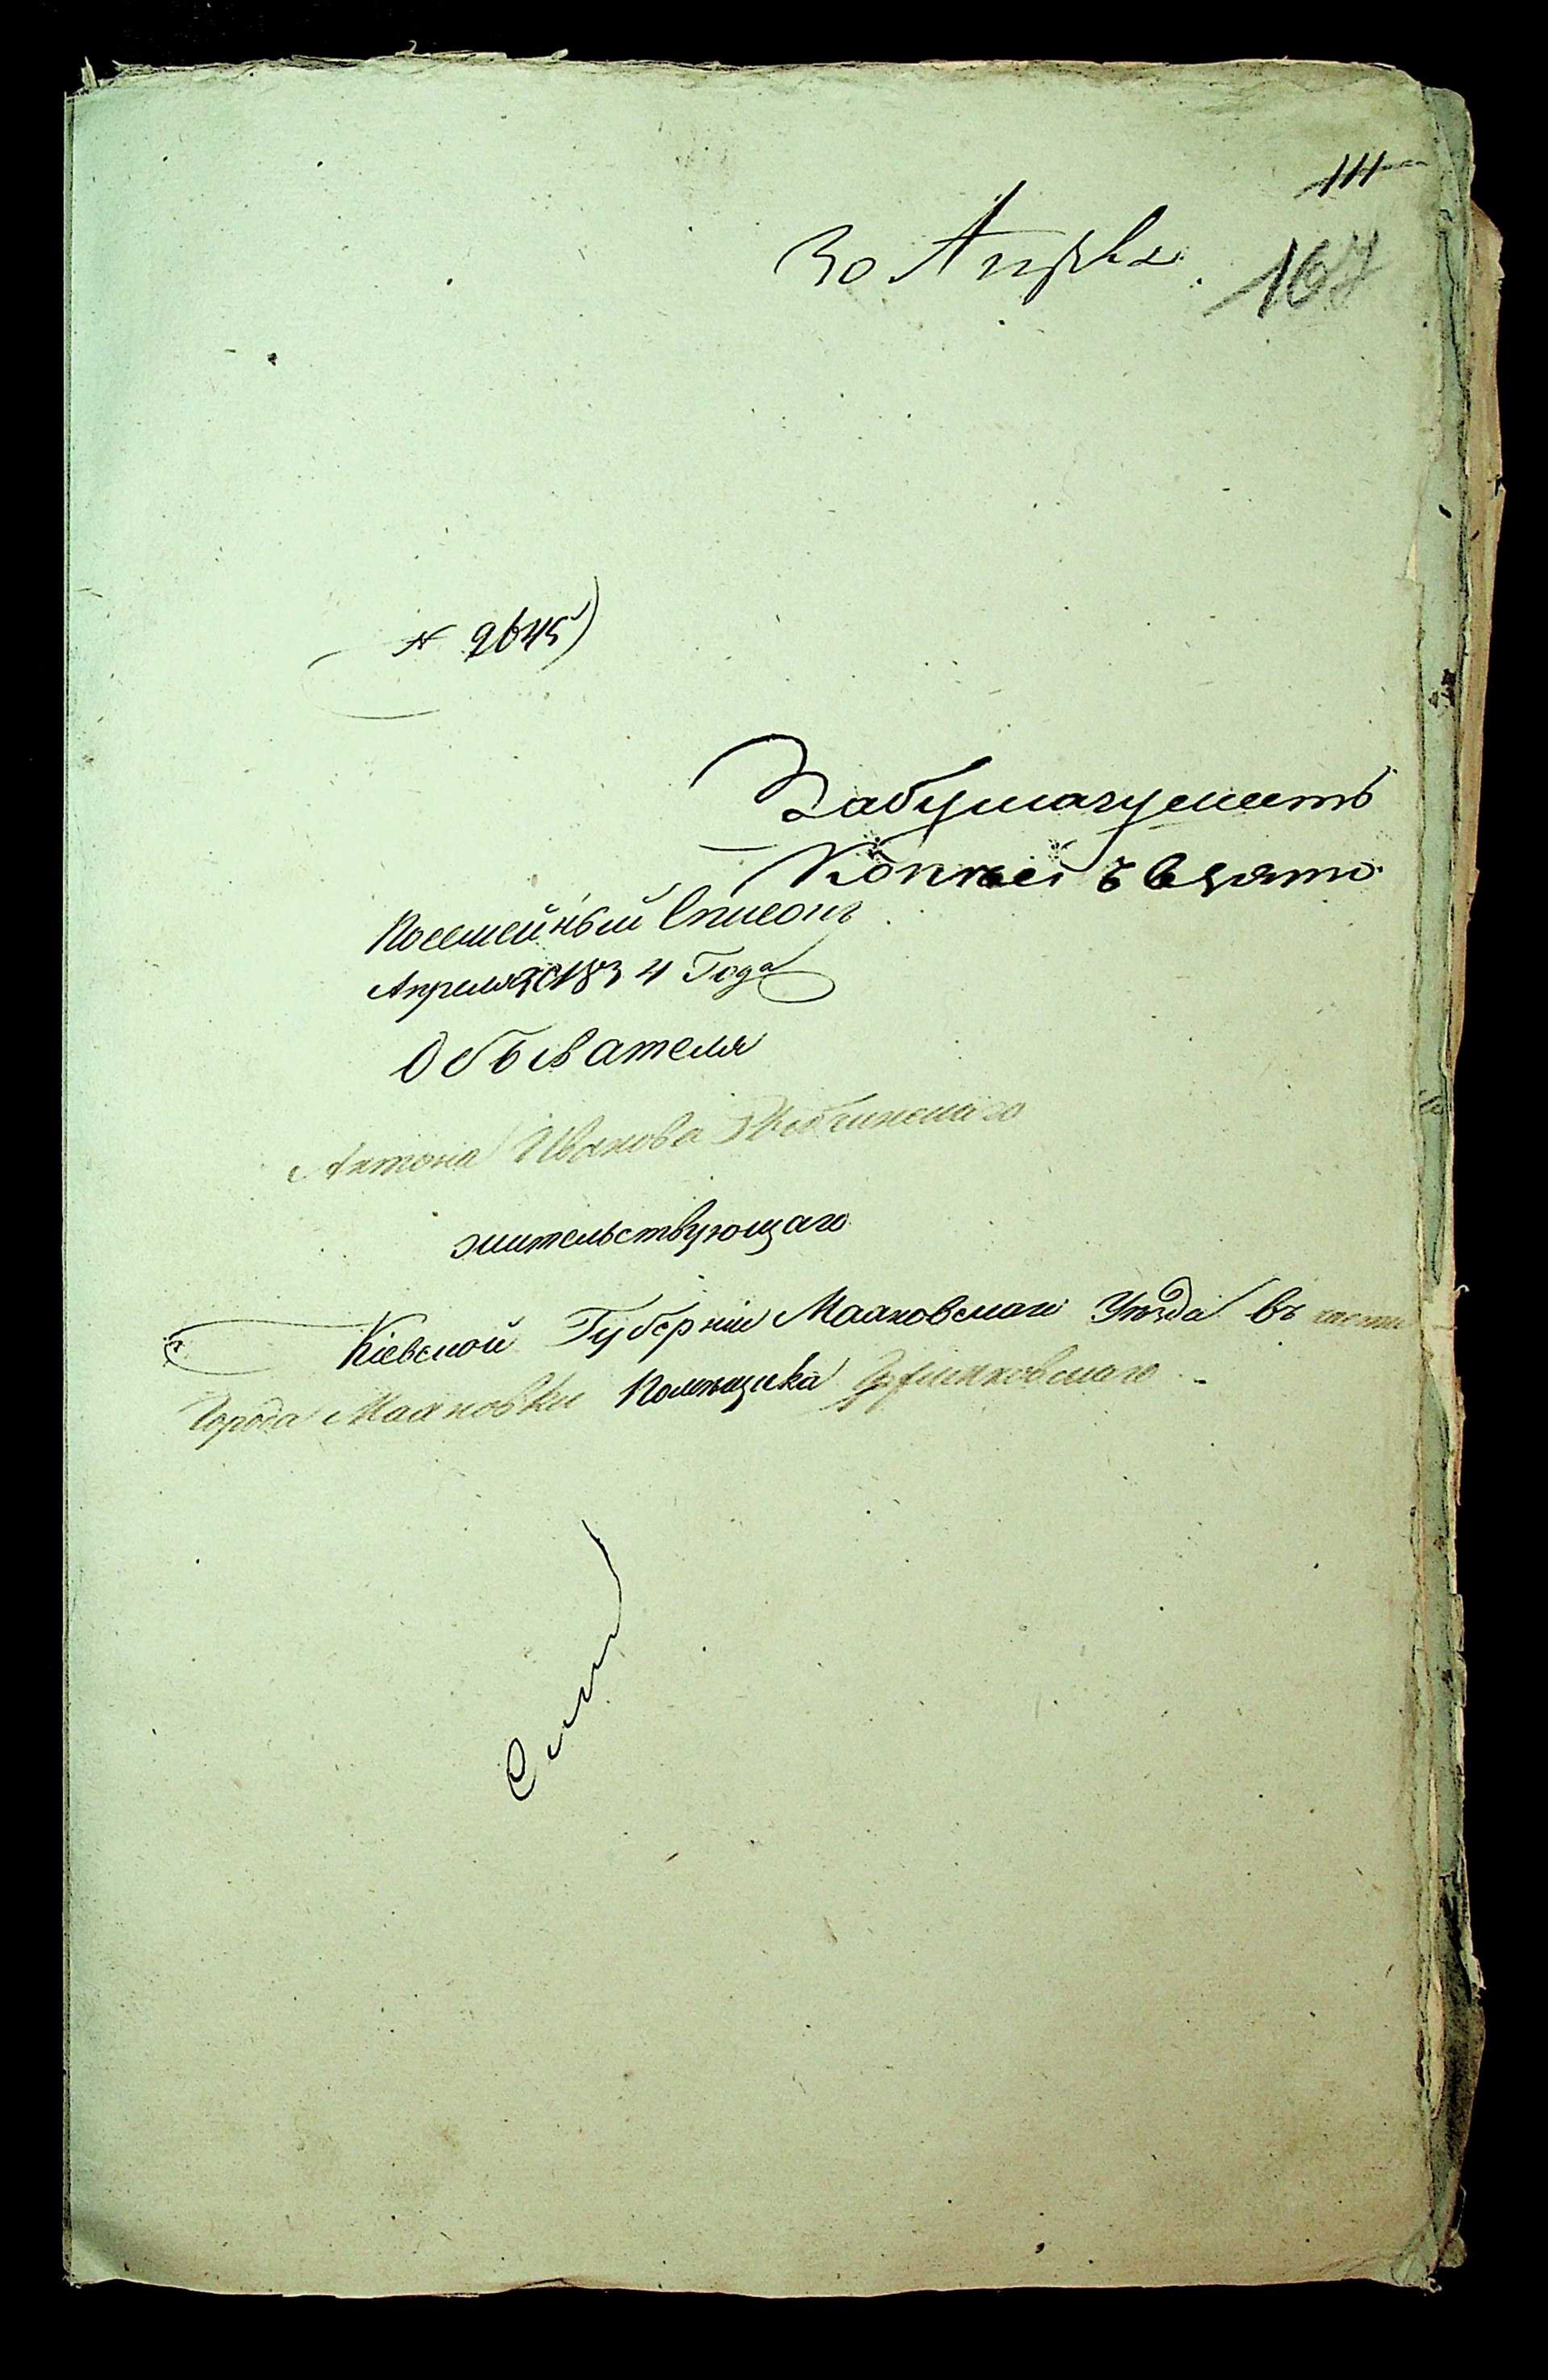 111
30 Апрѣля
167
№ 2645
За бумагу шесть
Копѣекъ взято
Посемейный Списокъ
Апреля 30 1834 Года
Обывателя
Антона Иванова
жительствующаго
Кіевской Губерніи Махновскаго Уѣзда въ части
Города Махновки Помѣщика